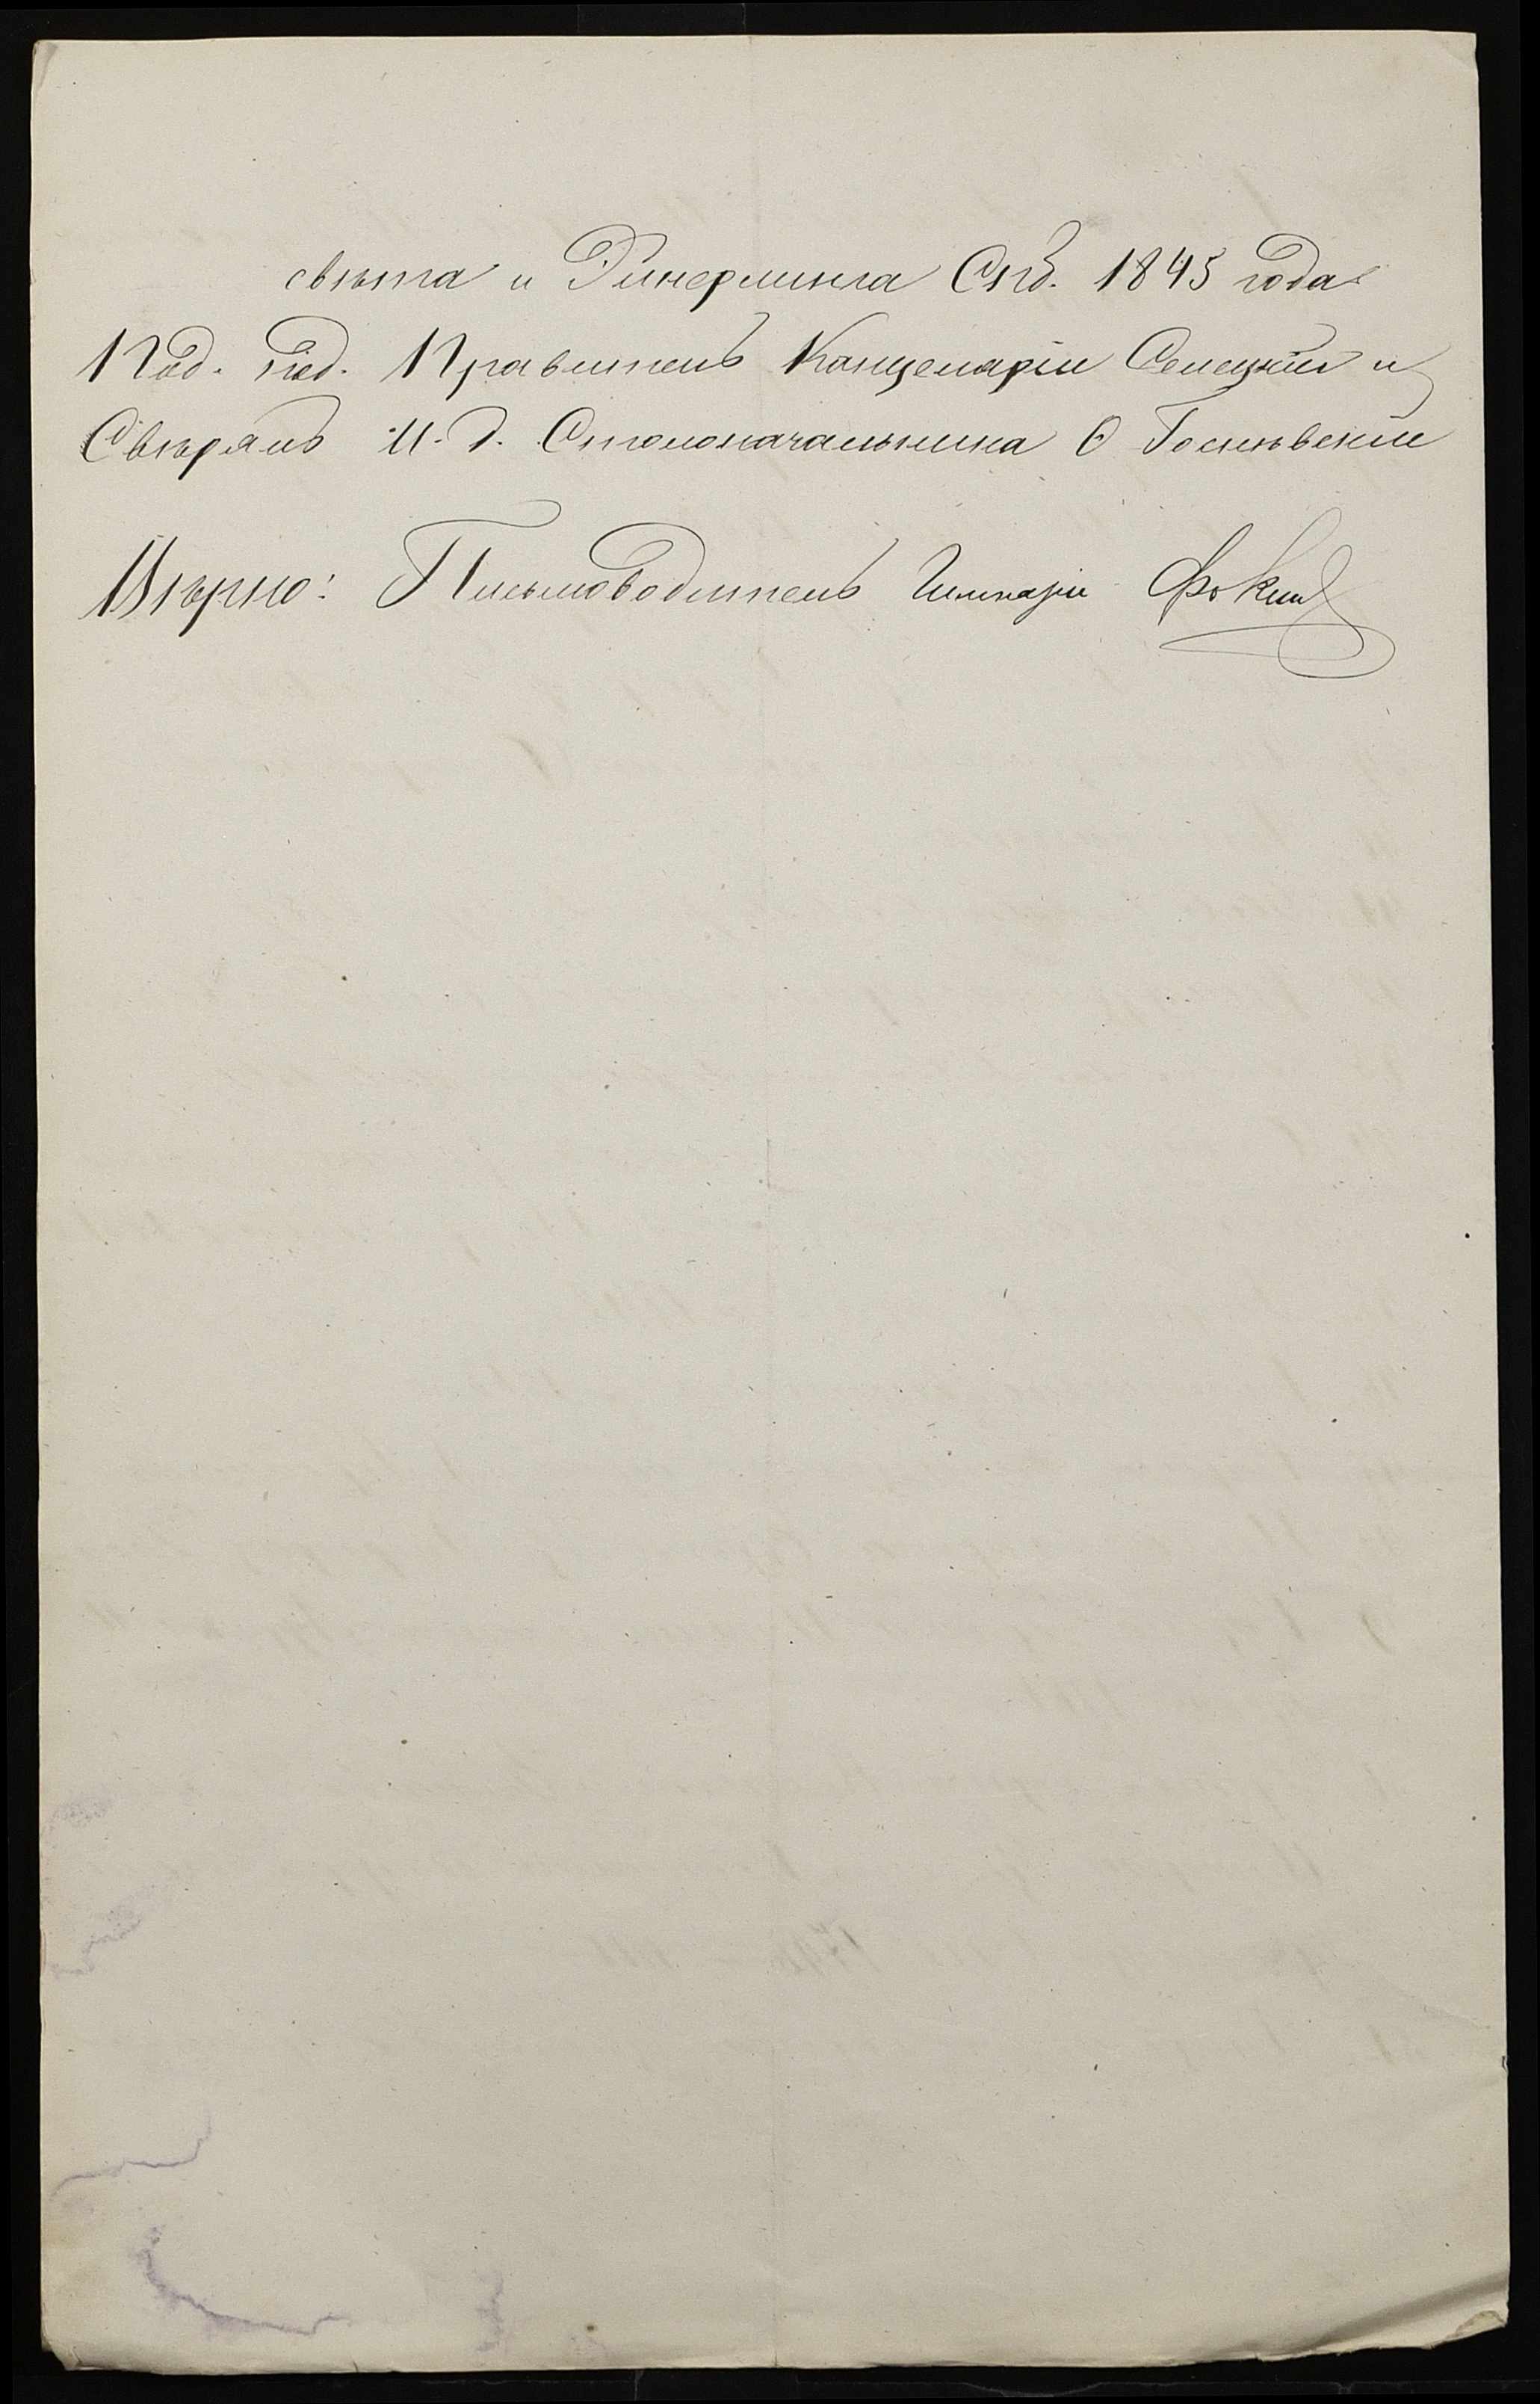 свѣта и Динерминга Спб. 1845 года
Под. под. Правитель Канцеляріи Селецкій и
Свѣрялъ И. д. Столоначальника О Голембскій
Вѣрно: Письмоводитель Гимназіи Фокинъ